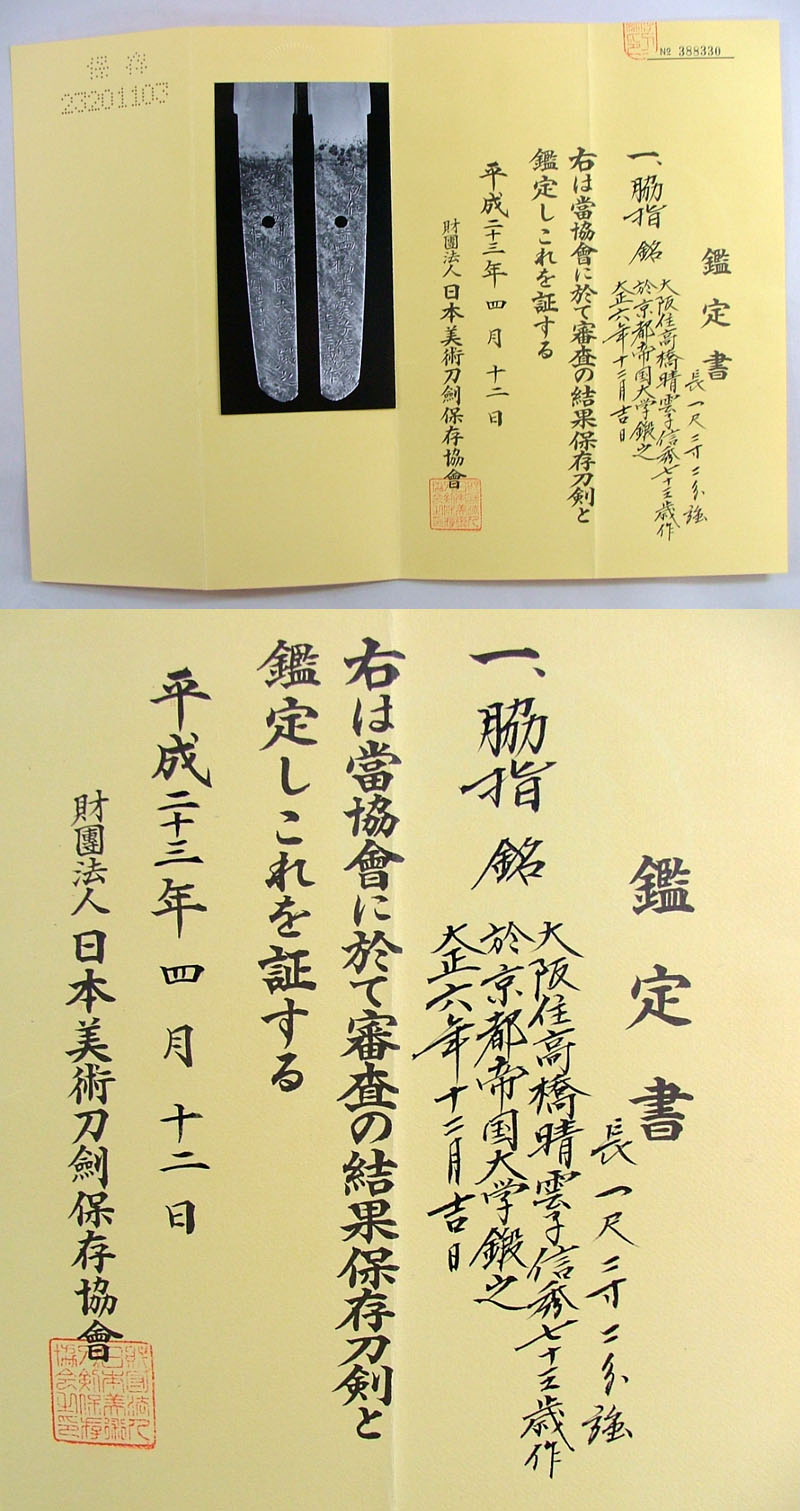 № 388330
鑑定書
一、脇指 銘
長一尺二寸二分強
大阪住高橋晴雲子信秀七十三歳作
於京都帝国大学鍛之
大正六年十二月吉日
右は當協會に於て審査の結果保存刀剣と
鑑定しこれを証する
平成二十三年四月十二日
財團法人日本美術刀劍保存協會
保存
23201103
鑑定書
一、脇指 銘
長一尺二寸二分強
大阪住高橋晴雲子信秀七十三歳作
於京都帝国大学鍛之
大正六年十二月吉日
右は當協會に於て審査の結果保存刀剣と
鑑定しこれを証する
平成二十三年四月十二日
財團法人日本美術刀劍保存協會